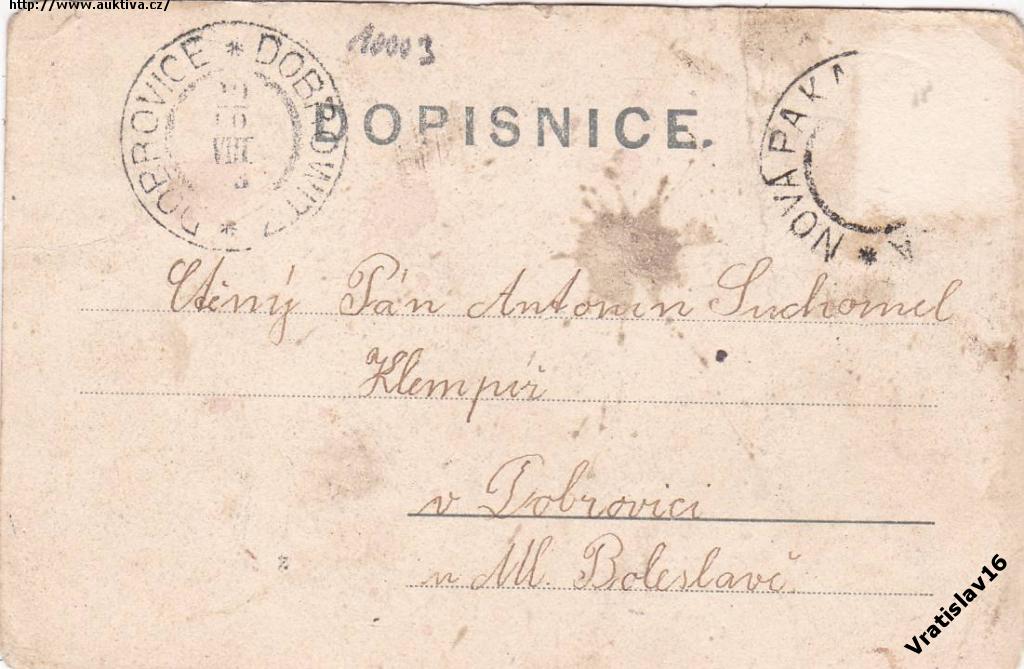 http://www.auktiva.cz/
DOBROVICE * DOBROVITZ *
VIII
10003
DOPISNICE.
* NOVA PAKA
Ctěný Pán Antonin Suchomel
Klempíř
v Dobrovici
u Ml. Boleslavě.
Vratislav16